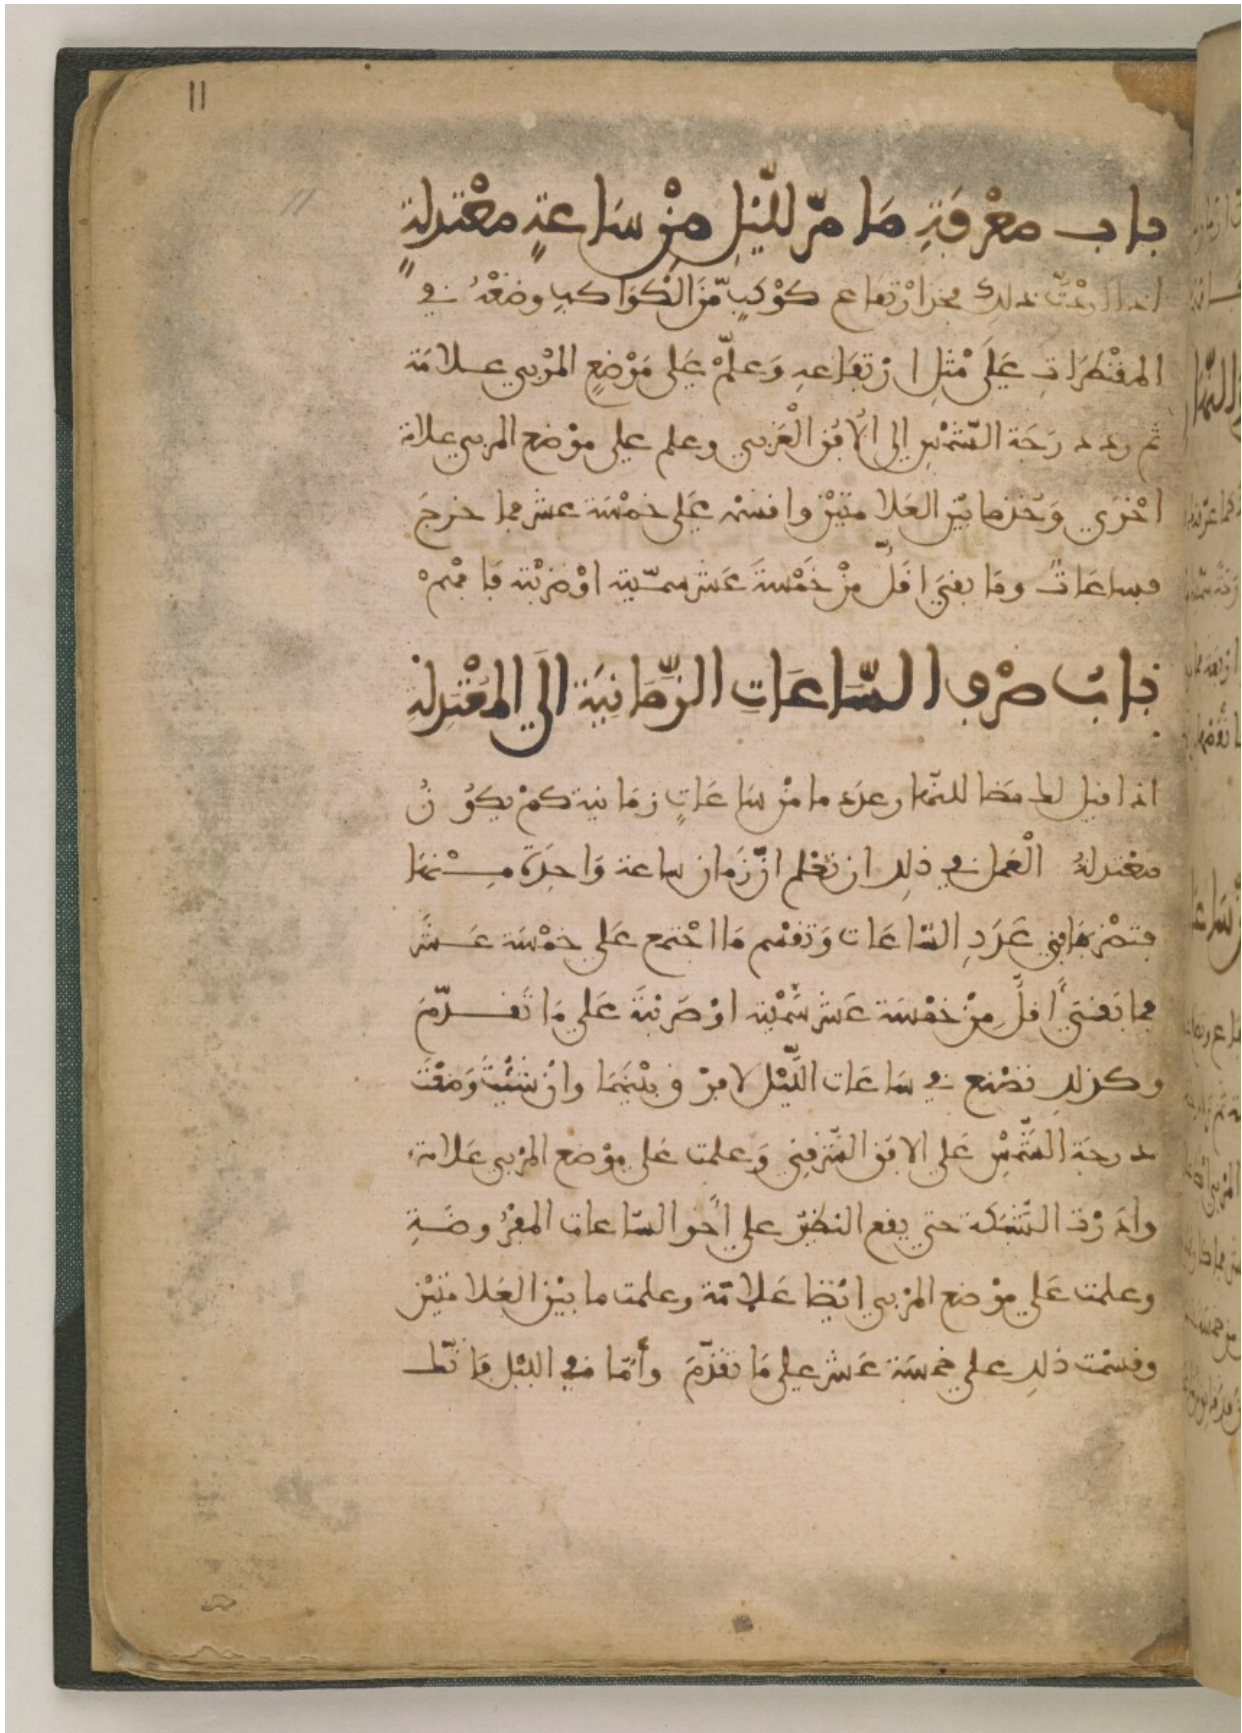 11
باب معرفة ما مرّ لليل من ساعة معتدلة
اذا اردت ذلك فخذ ارتفاع كوكب من الكواكب وضعه في
المقنطرات على مثل ارتفاعه وعلّم على موضع المري علامة
ثم رد درجة الشمس الى الافق الغربي وعلم على موضع المري علامة
اخرى وخذ ما بين العلامتين واقسمه على خمسة عشر فما خرج
فساعات وما بقي اقل من خمسة عشر سمّيته او ضربته فافهم
باب صرف الساعات الزمانية الى المعتدلة
اذا قيل لك مضا للنهار عدد ما من ساعات زمانية كم يكون
معتدلة العمل في ذلك ان تعلم ازمان ساعة واحدة منها
فتضربها في عدد الساعات وتقسم ما اجتمع على خمسة عشر
فما بقي اقل من خمسة عشر سمّيته او ضربته على ما تقدّم
وكذلك تصنع في ساعات الليل لا فرق بينهما وان شئت وضعت
درجة الشمس على الافق الشرقي وعلمت على موضع المري علامة
وادرت الشبكة حتى يقع النظير على احو الساعات المفروضة
وعلمت على موضع المري ايضا علامة وعلمت ما بين العلامتين
وقسمت ذلك على خمسة عشر على ما تقدّم وأمّا في الليل فانّك